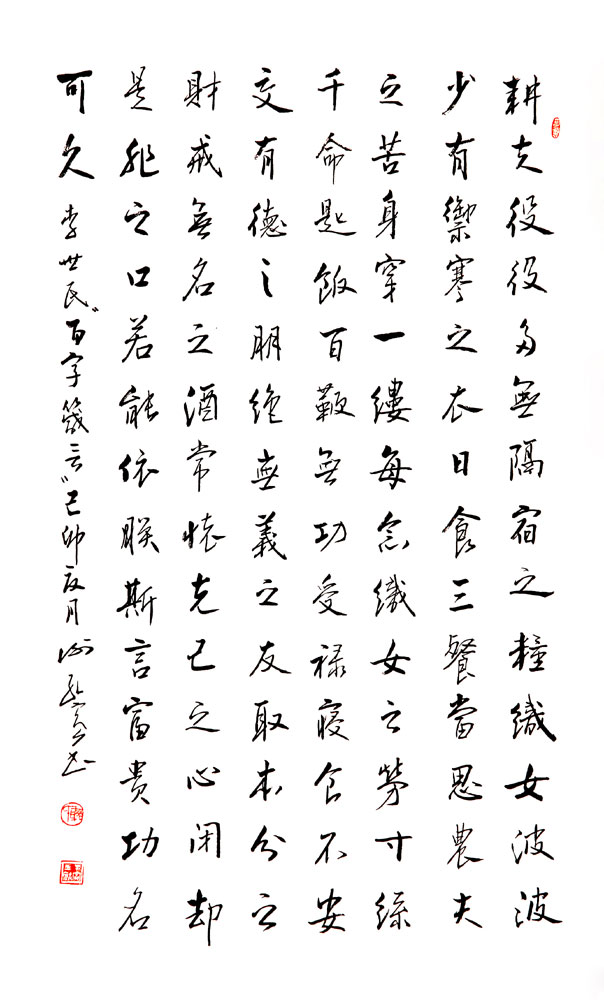 耕夫役役多無隔宿之糧織女波波
少有禦寒之衣日食三餐當思農夫
之苦身穿一縷每念織女之勞寸絲
千命匙飯百鞭無功受祿寢食不安
交有德之朋絕無義之友取本分之
財戒無名之酒常懷克己之心閉却
是非之口若能依朕斯言富貴功名
可久 李世民"百字箴言"己卯夏月